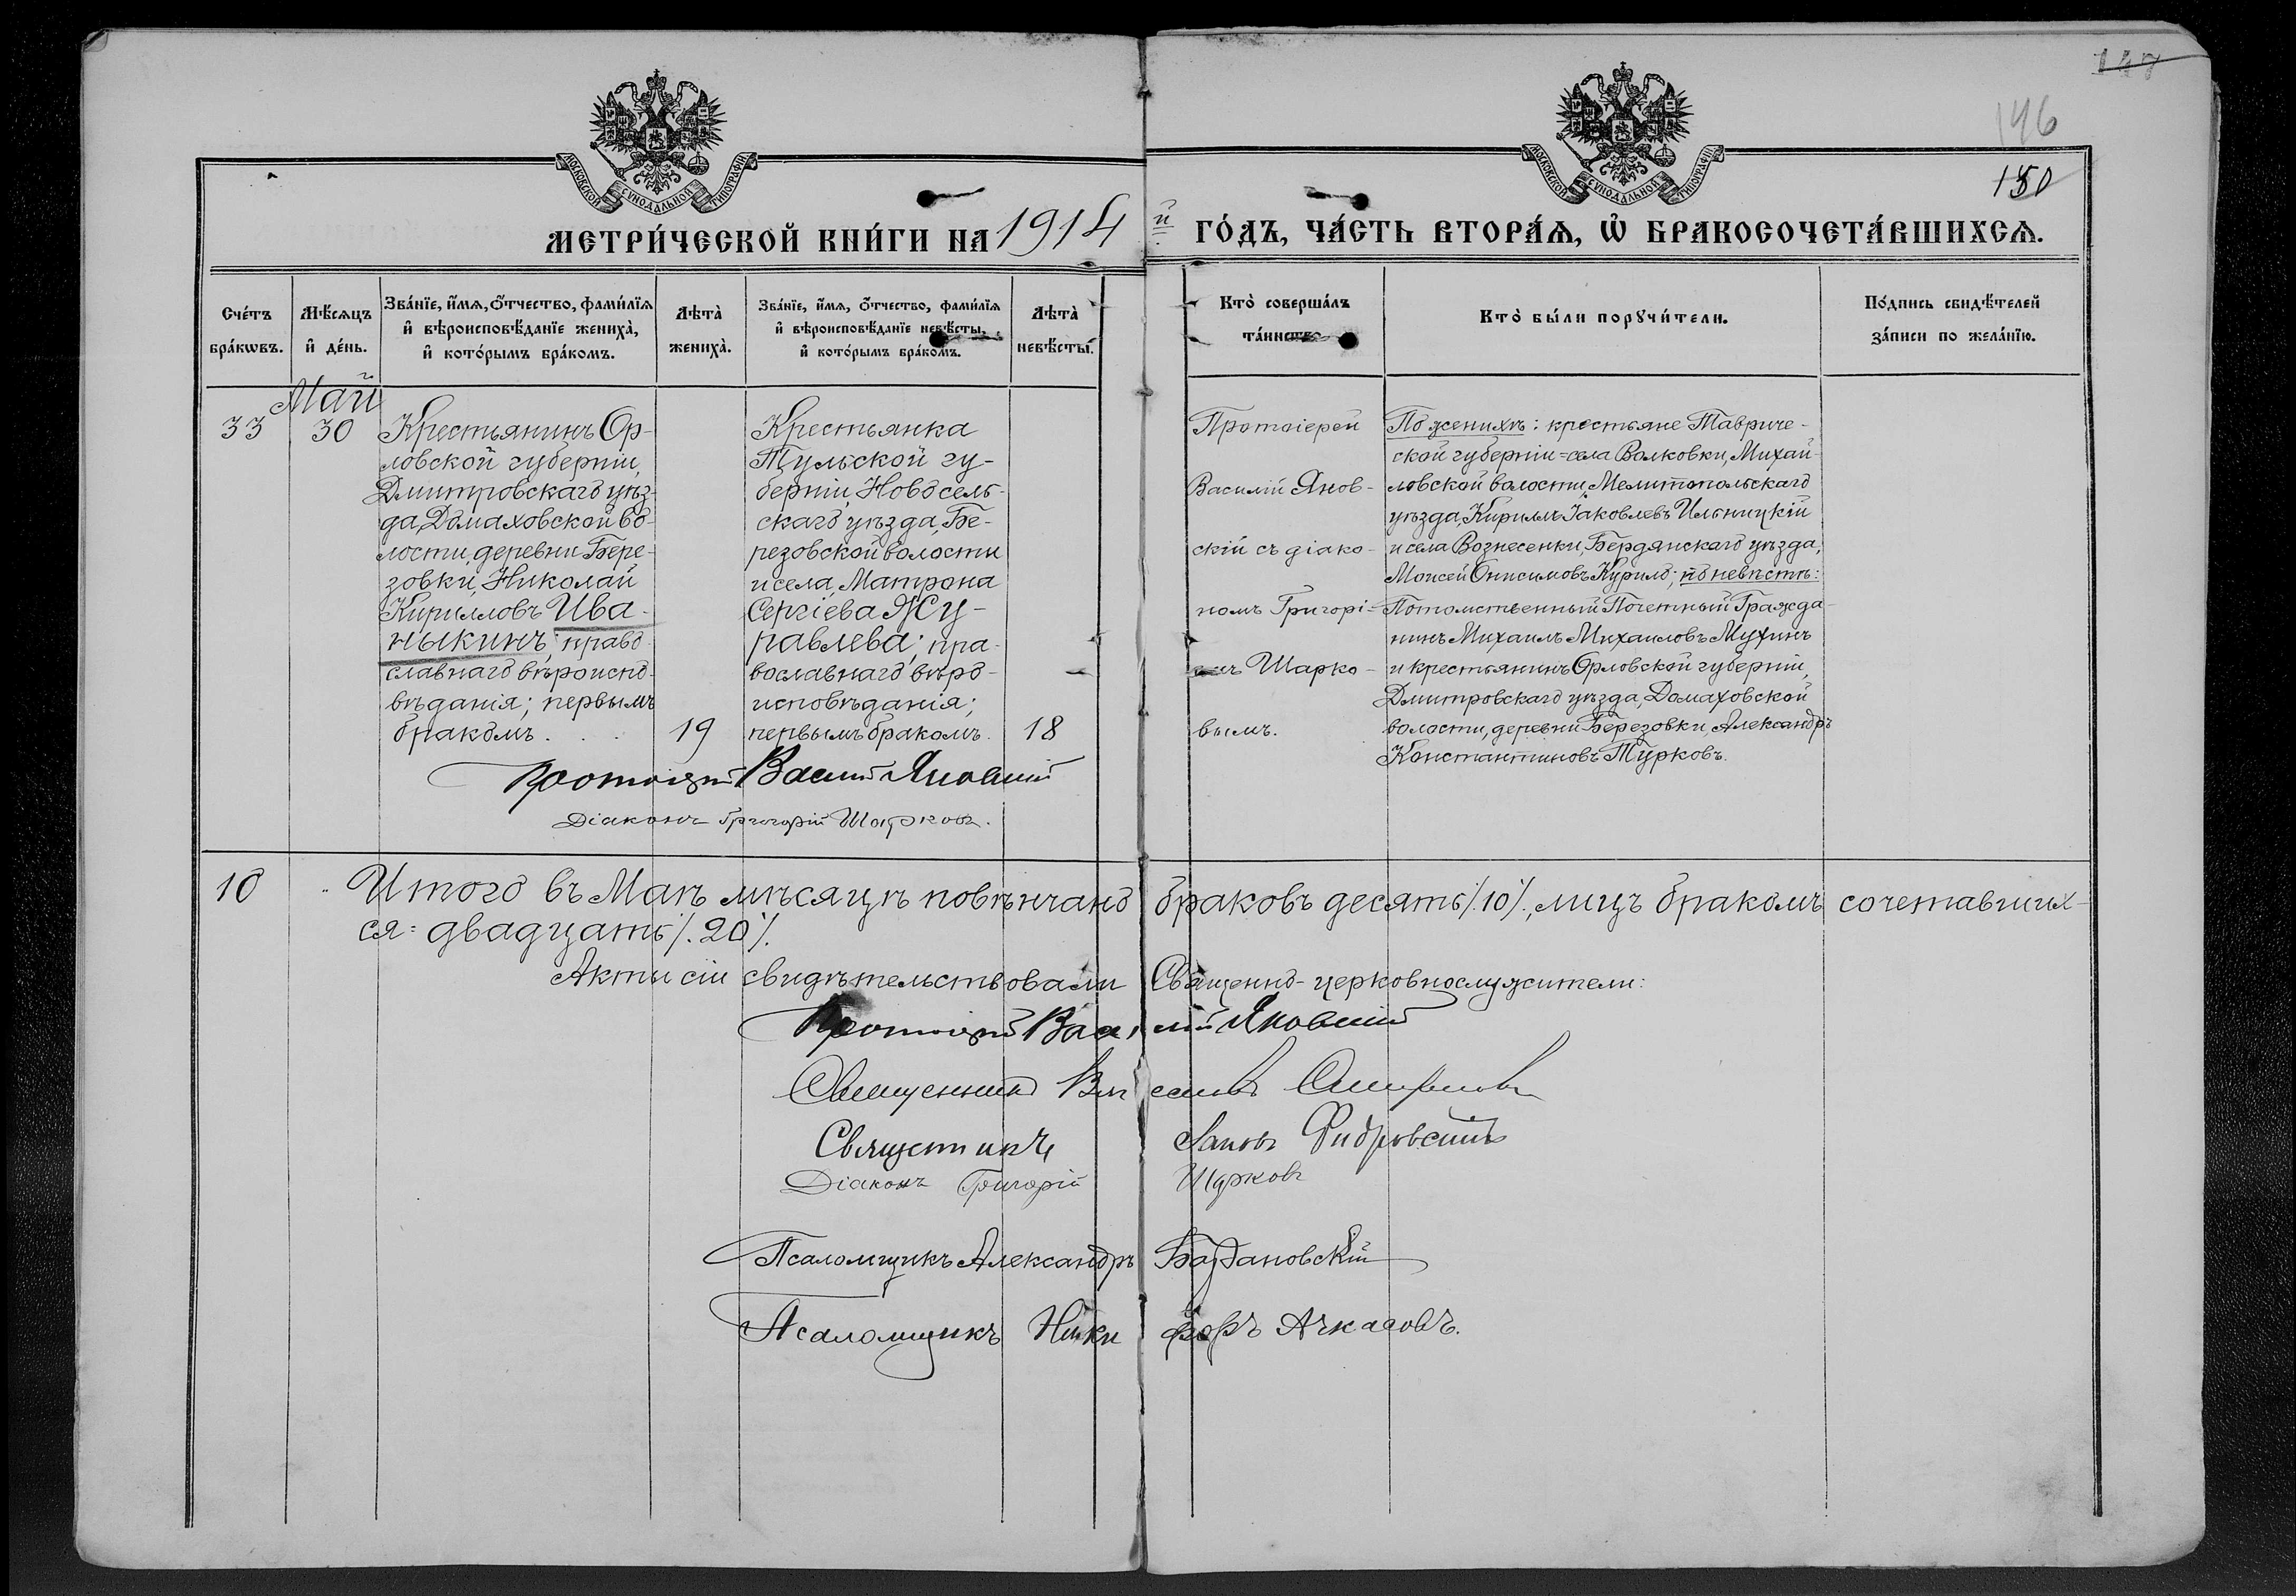 147
146
150
МОСКОВСКОЙ СУНОДАЛЬНОЙ ТИПОГРАФІИ
МОСКОВСКОЙ СУНОДАЛЬНОЙ ТИПОГРАФІИ
МЕТРИ́ЧЕСКОЙ КНИ́ГИ НА 1914 й ГО́ДЪ, ЧА́СТЬ ВТОРА́Ѧ, Ѽ БРАКОСОЧЕТА́ВШИХСѦ.
Сче́тъ
бра́кѡвъ.
Мѣ́сѧцъ
и҆ де́нь.
Зва́нїе, и҆́мѧ, ѻ҆́тчество, фами́лїѧ
и҆ вѣроисповѣ́данїе жениха̀,
и҆ кото́рымъ бра́комъ.
Лѣ́та̀
жениха̀.
Зва́нїе, и҆́мѧ, ѻ҆́тчество, фами́лїѧ
и҆ вѣроисповѣ́данїе невѣ́сты,
и҆ кото́рымъ бра́комъ.
Лѣ́та̀
невѣ́сты.
Кто̀ соверша́лъ
та́инство
Кто̀ бы́ли порꙋчи́тели.
По́дпись свидѣ́телей
за́писи по жела́нїю.
Май
33
30
Крестьянинъ Ор-
ловской губерніи,
Дмитровскаго уѣз-
да, Домаховской во-
лости, деревни Бере-
зовки, Николай
Кирилловъ Ива-
ныкинъ; право-
славнаго вѣроиспо-
вѣданія; первымъ
бракомъ . . .
19
Крестьянка
Тульской гу-
берніи, Новосель-
скаго уѣзда, Бе-
резовской волости
и села, Матрона
Сергіева Жу-
равлева; пра-
вославнаго вѣро-
исповѣданія;
первымъ бракомъ.
18
Протоіерей
Василій Янов-
скій съ діако-
номъ Григорі-
емъ Шарко-
вымъ.
По женихѣ: крестьяне Тавриче-
ской губерніи=села Волковки, Михай-
ловской волости, Мелитопольскаго
уѣзда, Кириллъ Іаковлевъ Ильницкій
и села Вознесенки, Бердянскаго уѣзда,
Моисей Онисимовъ Курило; по невѣстѣ:
Потомственный Почетный Гражда-
нинъ Михаилъ Михаиловъ Мухинъ
и крестьянинъ Орловской губерніи,
Дмитровскаго уѣзда, Домаховской
волости, деревни Березовки, Александръ
Константиновъ Турковъ.
Протоіерей Василій Яновскій
Діаконъ Григорій Шарковъ.
10
Итого въ Маѣ мѣсяцѣ повѣнчано браковъ десять /.10/., лицъ бракомъ сочетавших-
ся: двадцать /.20/.
Акты сіи свидѣтельствовали Священно-церковнослужители:
Протоіерей Василій Яновскій
Священникъ
Священникъ Іаковъ
Діаконъ Григорій Шарковъ
Псаломщикъ Александръ
Псаломщикъ Никифоръ Ачкасовъ.